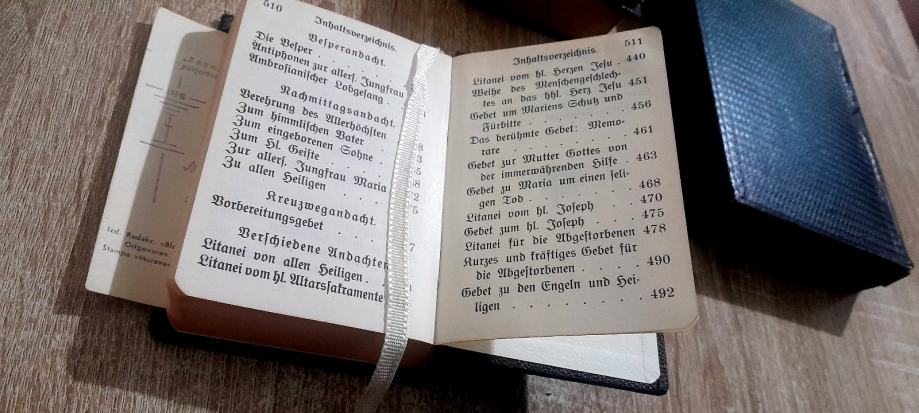 510
Inhaltsverzeichnis.
Vesperandacht.
Die Vesper . . . . .
Antiphonen zur allers. Jungfrau
Ambrosianischer Lobgesang .
Nachmittagsandacht.
Verehrung des Allerhöchsten
Zum himmlischen Vater . .
Zum eingeborenen Sohne .
Zum Hl. Geiste . . . .
Zur allers. Jungfrau Maria
Zu allen Heiligen . .
Kreuzwegandacht.
Vorbereitungsgebet . . .
Verschiedene Andachten
Litanei von allen Heiligen .
Litanei vom hl. Altarssakramente
Inhaltsverzeichnis. 511
Litanei vom hl. Herzen Jesu . 440
Weihe des Menschengeschlech-
tes an das hhl. Herz Jesu 451
Gebet um Mariens Schutz und
Fürbitte . . . . . 456
Das berühmte Gebet: Memo-
rare . . . . . . 461
Gebet zur Mutter Gottes von
der immerwährenden Hilfe . 463
Gebet zu Maria um einen seli-
gen Tod . . . . . 468
Litanei vom hl. Joseph . . 470
Gebet zum hl. Joseph . . 475
Litanei für die Abgestorbenen 478
Kurzes und kräftiges Gebet für
die Abgestorbenen . . . 490
Gebet zu den Engeln und Hei-
ligen . . . . . . 492
Izd. Redakc. »Bl
Odgovoren
Stampa »Morava«